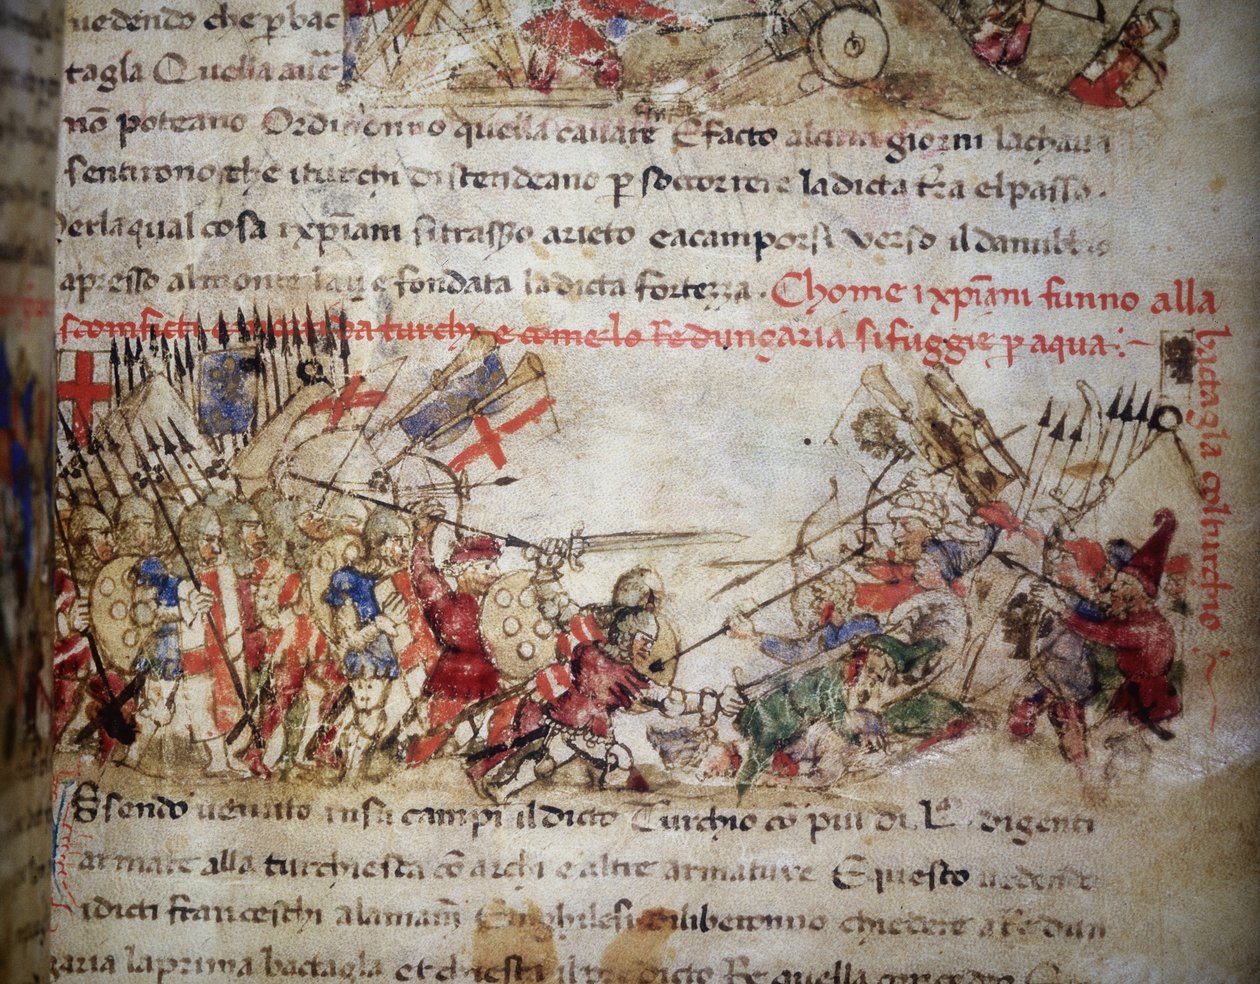 uedendo che p bac
tagla Quella auē
nō poteano Ordinonno quella cauare E facto alcuni giorni la chaua
sentirono che i turchi distendeano p soccorrere la dicta tr̄a el passo.
Perla qual cosa i xp̄iani si trasso arieto e acamporsi verso il danubbio
apresso al monte lau e fondata la dicta fortezza. Chome i xp̄iani funno alla
sconficti baturchi e come lo Re dungaria si fuggie p aqua:~
bactagla col turchio:~
Essendo uenuto in su campi il dicto Turchio cō piu di Lᴬ. di genti
armate alla turchiesca cō archi e altre armature E questo uedendo
i dicti franceschi alamāni Enghilesi dilibetonno chiedere a Re dun
garia la prima bactagla et chiesta il p dicto Re quella